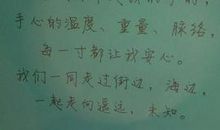 手心的温度、重量、脉络，
每一寸都让我安心。
我们一同走过街边，海边，
一起走向遥远，未知。